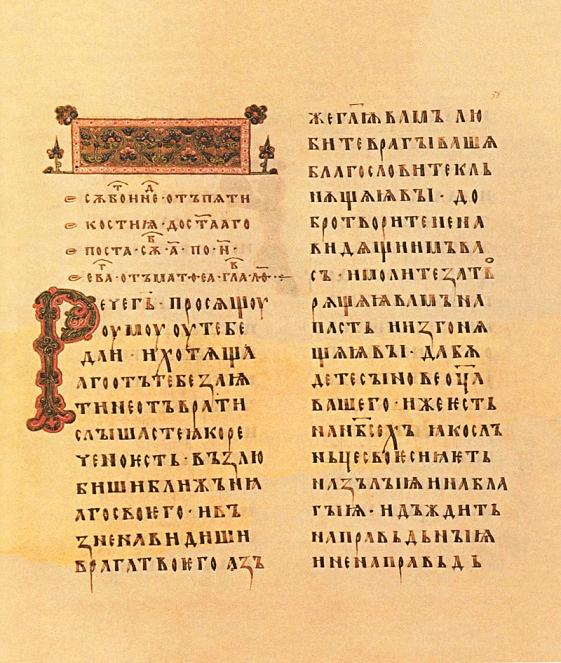 сѫбоннє · отъпѧти
костиꙗ · достааго
поста · сѫ · а҃ · по · н҃ ·
єва · отъ мато · єа · гла · ло ·
Реуегь · просѧщоу
оумоу оу тебе
даи · и хотѧща
аго отъ тебе заꙗ
ти не отъврати
слышасте ꙗко ре
чено ѥсть · възлю
биши ближьнꙗ
аго своѥго · и въ
зненавидиши
врага твоѥго азъ
же гл҃ѭ вамъ лю
бите врагы вашѧ
благословите кль
нѧщаꙗ вы · до
бро творите нена
видѧщиимъ ва
съ · и молите за тв
рѧщаꙗ вамъ на
пасть и изгонѧ
щаꙗ вы · да бѫ
дете сынове оц҃а
вашего · иже ѥсть
на нб҃сехъ ꙗко слъ
ньце своѥ сиꙗѥть
на зълыꙗ и на бла
гыꙗ · и дъждить
на правьдьныꙗ
и на неправьдь